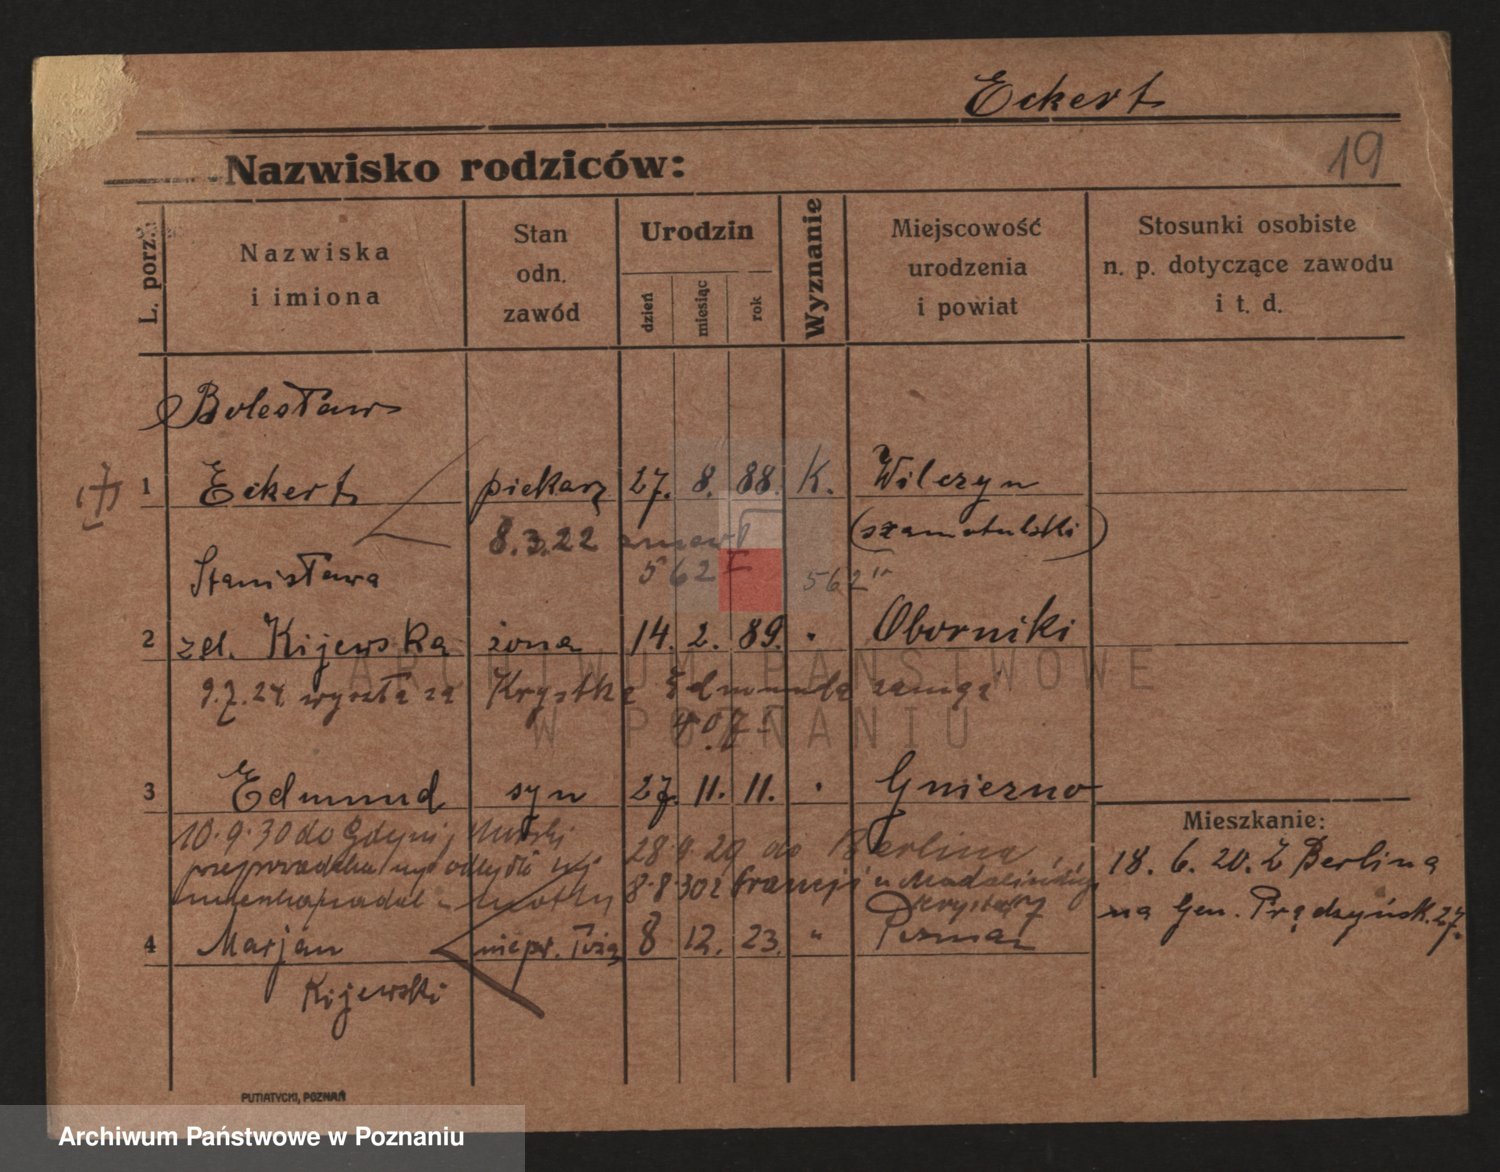 Eckert
19
Nazwisko rodziców:
L. porz.
Nazwiska
i imiona
Stan
odn.
zawód
Urodzin
dzień
miesiąc
rok
Wyznanie
Miejscowość
urodzenia
i powiat
Stosunki osobiste
n. p. dotyczące zawodu
i t. d.
Bolesław
1 Eckert piekarz 27. 8. 88. K. Wilczyn
(szamotulski)
8.3.22 zmarł
562 562
Stanisława
2 zd. Kijewska żona 14. 2. 89. " Oborniki
9.7.24 wyszła za Krystka Edmunda
3 Edmund syn 27. 11. 11. " Gniezno
Mieszkanie:
18. 6. 20. Z Berlina
na Gen. Prądzyńsk. 27.
10.9.30 do Gdyni
28.9.29 do Berlina
8.8.30 z Francji
4 Marjan 8 12. 23. " Poznań
Kijewski
PUTIATYCKI, POZNAŃ
ARCHIWUM PAŃSTWOWE
W POZNANIU
Archiwum Państwowe w Poznaniu